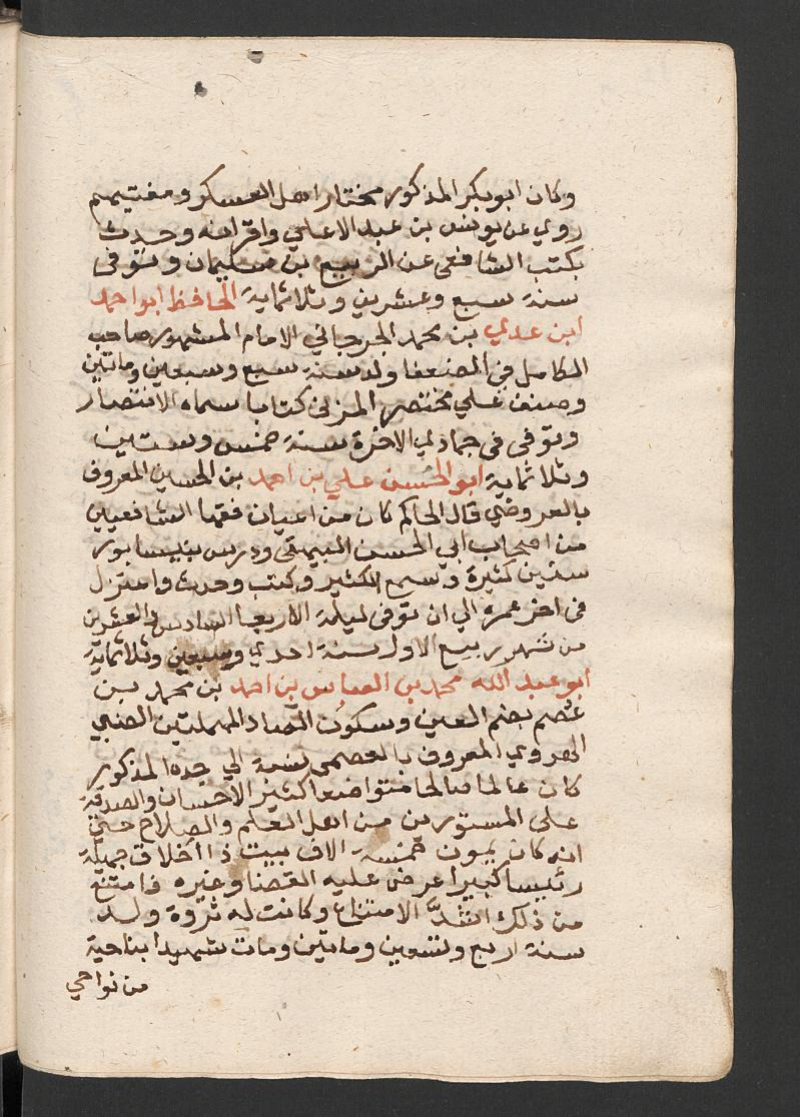 وكان ابوبكر المذكور مختار اهل العسكر ومفتيهم
روي عن يونس بن عبد الاعلي واقرانه وحدث
بكتب الشافعي عن الربيع بن سليمان وتوفى
سنة سبع وعشرين وثلاثماية الحافظ ابو احمد
ابن عدي بن محمد الجرجاني الامام المشهور صاحب
الكامل في الضعفا ولد سنة سبع وسبعين وماتين
وصنف علي مختصر المزني كتابا سماه الانتصار
وتوفى فى جمادي الاخرة سنة خمس وستين
وثلاثماية ابو الحسن علي بن احمد بن الحسين المعروف
بالعروضي قال الحاكم كان من اعيان فقها الشافعيين
من اصحاب ابي الحسن البيهقى ودرس بنيسابور
سنين كثيرة وسمع الكثير وكتب وحدث واعتزل
فى اخر عمره الي ان توفى ليلة الاربعا السادس والعشرين
من شهر ربيع الاول سنة احدي وسبعين وثلاثماية
ابو عبد الله محمد بن العباس بن احمد بن محمد بن
عُصم بضم العين وسكون الصاد المهملتين الضبي
الهروي المعروف بالعصمى نسبة الي جده المذكور
كان عالما صالحا متواضعا كثير الاحسان والصدقة
على المستورين من اهل العلم والصلاح حتى
انه كان يمون خمسة الاف بيت ذا اخلاق جميلة
رئيسا كبيرا عرض عليه القضا وغيره فامتنع
من ذلك اشدّ الامتناع وكانت له ثروة ولد
سنة اربع وتسعين وماتين ومات شهيدا بناحية
من نواحي